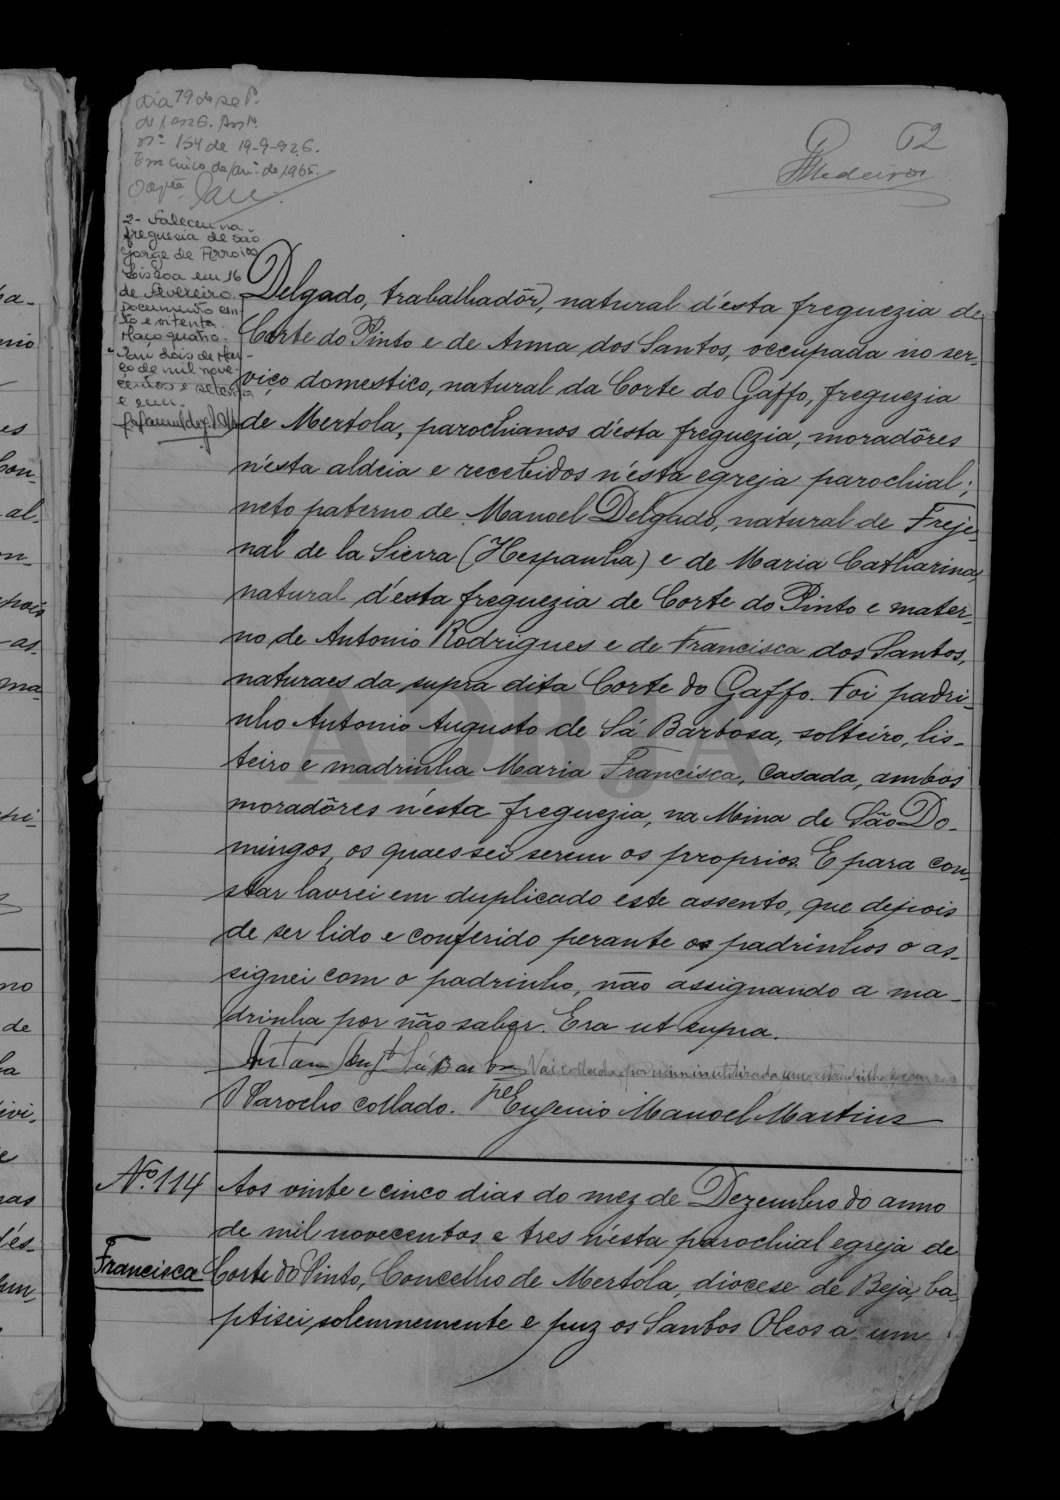 62
Medeiros
dia 19 de
nº 154 de 19-9-926.
Em cinco de de 1965.
2- Faleceu na
freguesia de São
Jorge de Arroios
Lisboa em 16
de Fevereiro.
Documento cen-
to e oitenta.
Maço quatro.
Em dois de Mar-
ço de mil nove-
centos e setenta
e um.
Delgado, trabalhadôr, natural d'esta freguezia de
Corte do Pinto e de Anna dos Santos, occupada no ser-
viço domestico, natural da Corte do Gaffo, freguezia
de Mertola, parochianos d'esta freguezia, moradôres
n'esta aldeia e recebidos n'esta egreja parochial;
neto paterno de Manoel Delgado, natural de Freje-
nal de la Sierra (Hespanha) e de Maria Catharina,
natural d'esta freguezia de Corte do Pinto e mater-
no de Antonio Rodrigues e de Francisca dos Santos,
naturaes da supra dita Corte do Gaffo. Foi padri-
nho Antonio Augusto de Sá Barbosa, solteiro, lis-
teiro e madrinha Maria Francisca, casada, ambos
moradôres n'esta freguezia, na Mina de São Do-
mingos, os quaes sei serem os proprios. E para con-
star lavrei em duplicado este assento, que depois
de ser lido e conferido perante os padrinhos o as-
signei com o padrinho, não assignando a ma-
drinha por não saber. Era ut supra.
Vai collada por mim inutilizada uma estampilha
O Parocho collado. Pe Eugenio Manoel Martins
Nº 114
Francisca
Aos vinte e cinco dias do mez de Dezembro do anno
de mil novecentos e tres n'esta parochial egreja de
Corte do Pinto, Concelho de Mertola, diocese de Beja, ba-
ptisei solemnemente e puz os Santos Oleos a um
ADBJA